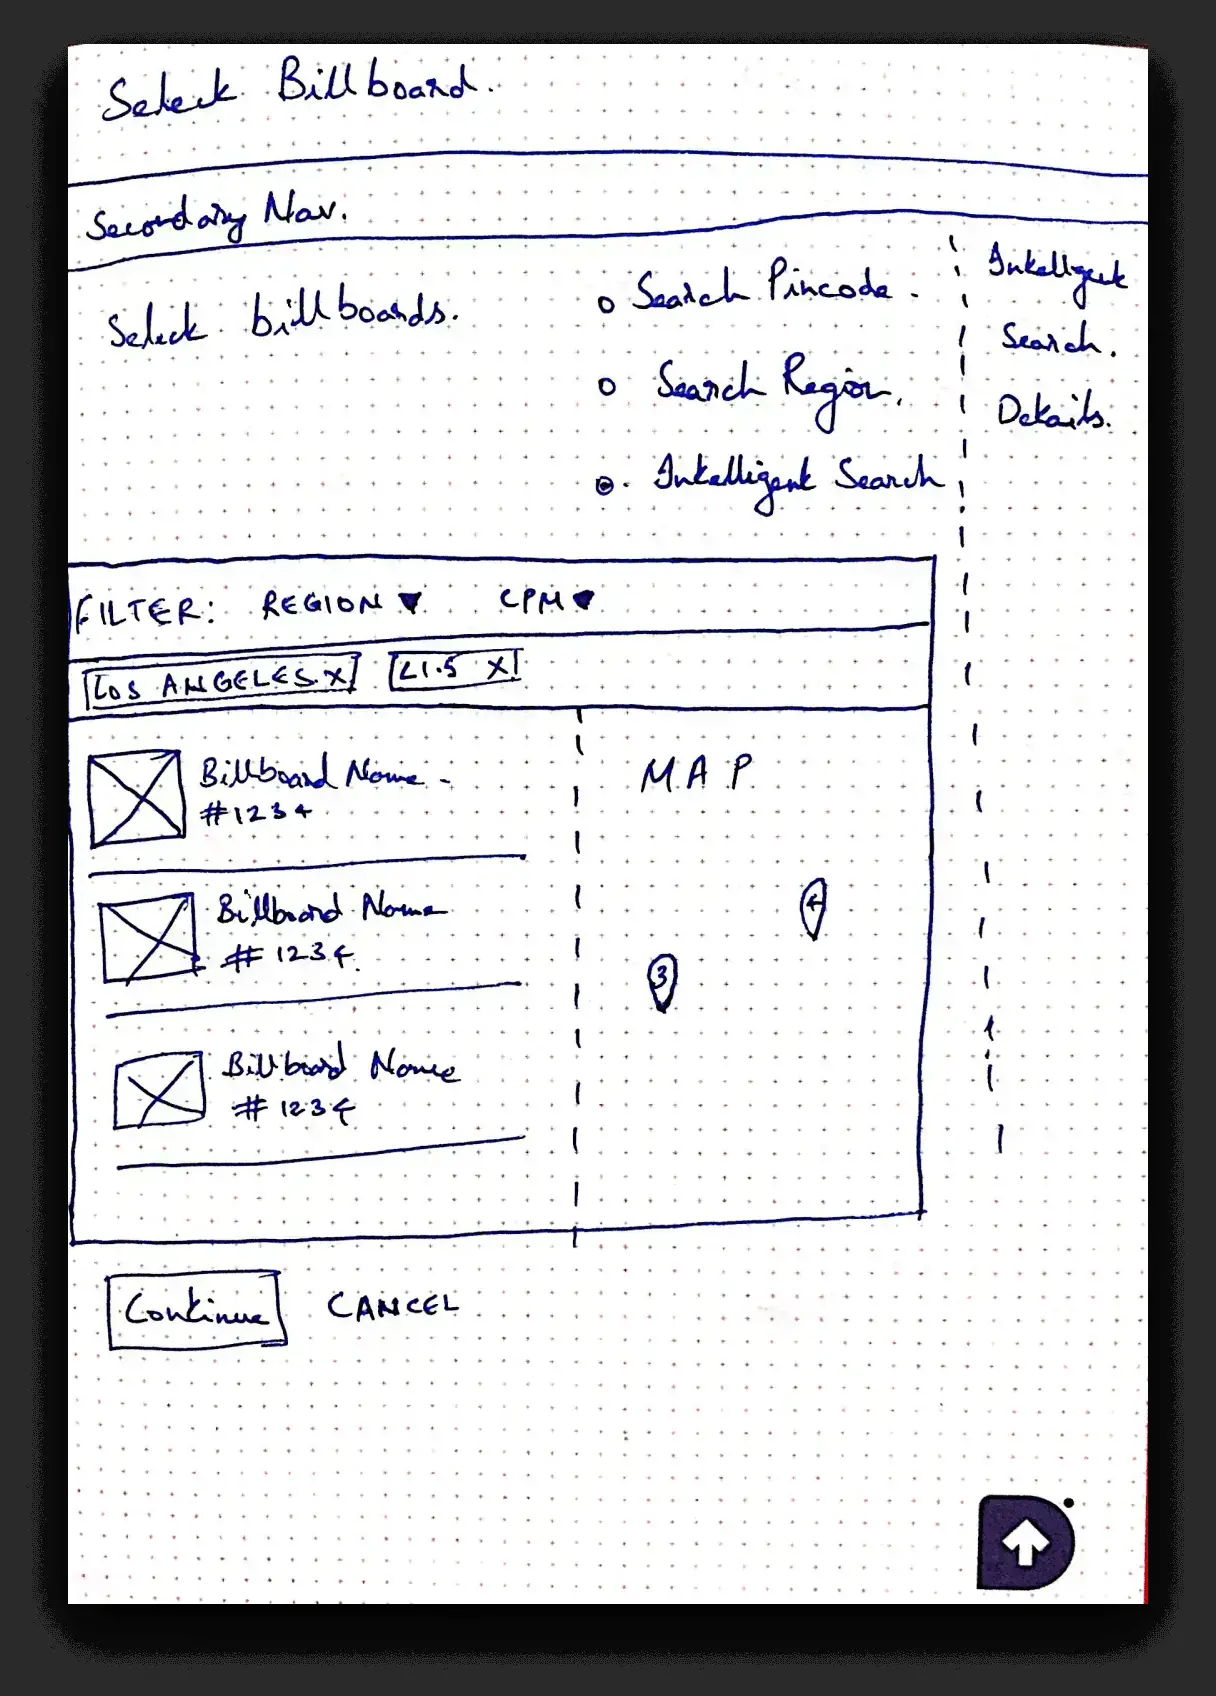 Select Billboard.
Secondary Nav.
Select billboards.
Search Pincode.
Search Region.
Intelligent Search
Intelligent
Search.
Details.
FILTER: REGION ▼ CPM ▼
LOS ANGELES X <1.5 X
Billboard Name
#1234
Billboard Name
# 1234
Billboard Name
# 1234
MAP
4
3
Continue CANCEL